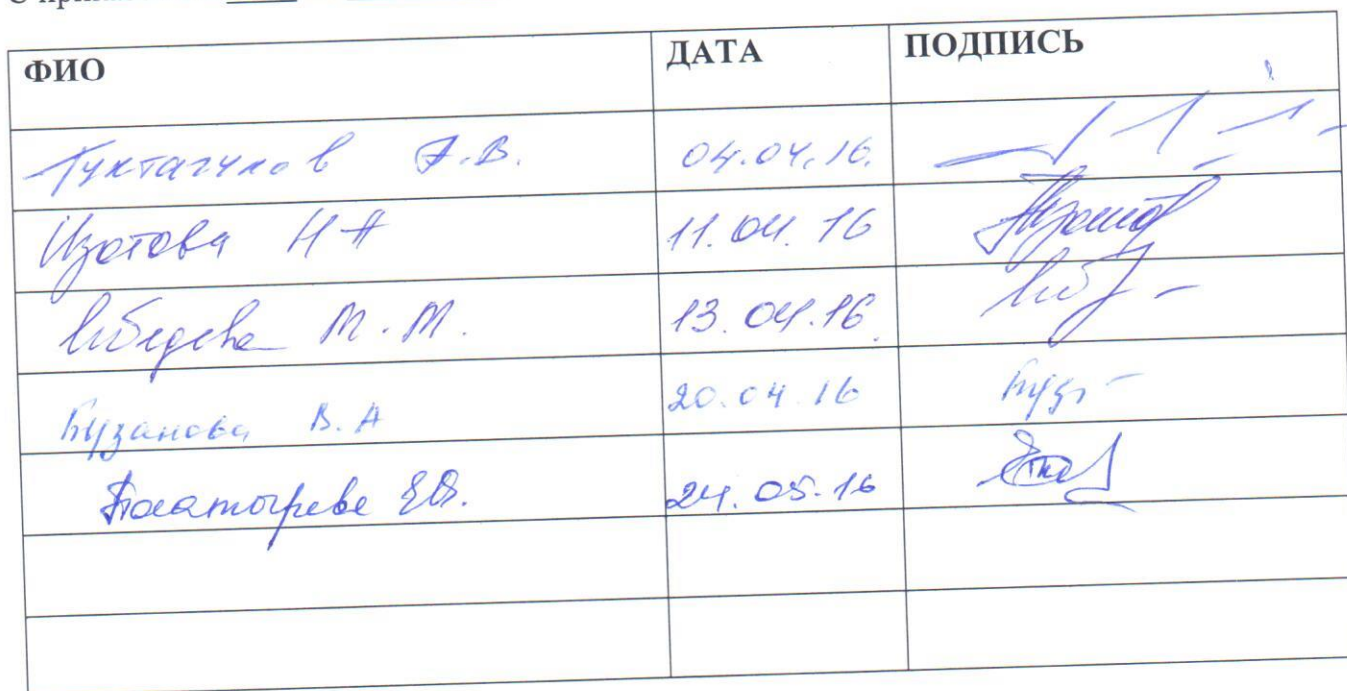 ФИО ДАТА ПОДПИСЬ
Туктагулов А.В. 04.04.16.
Изотова Н А 11.04.16
Лебедева М.М. 13.04.16
Бузанова В.А 20.04.16
24.05.16